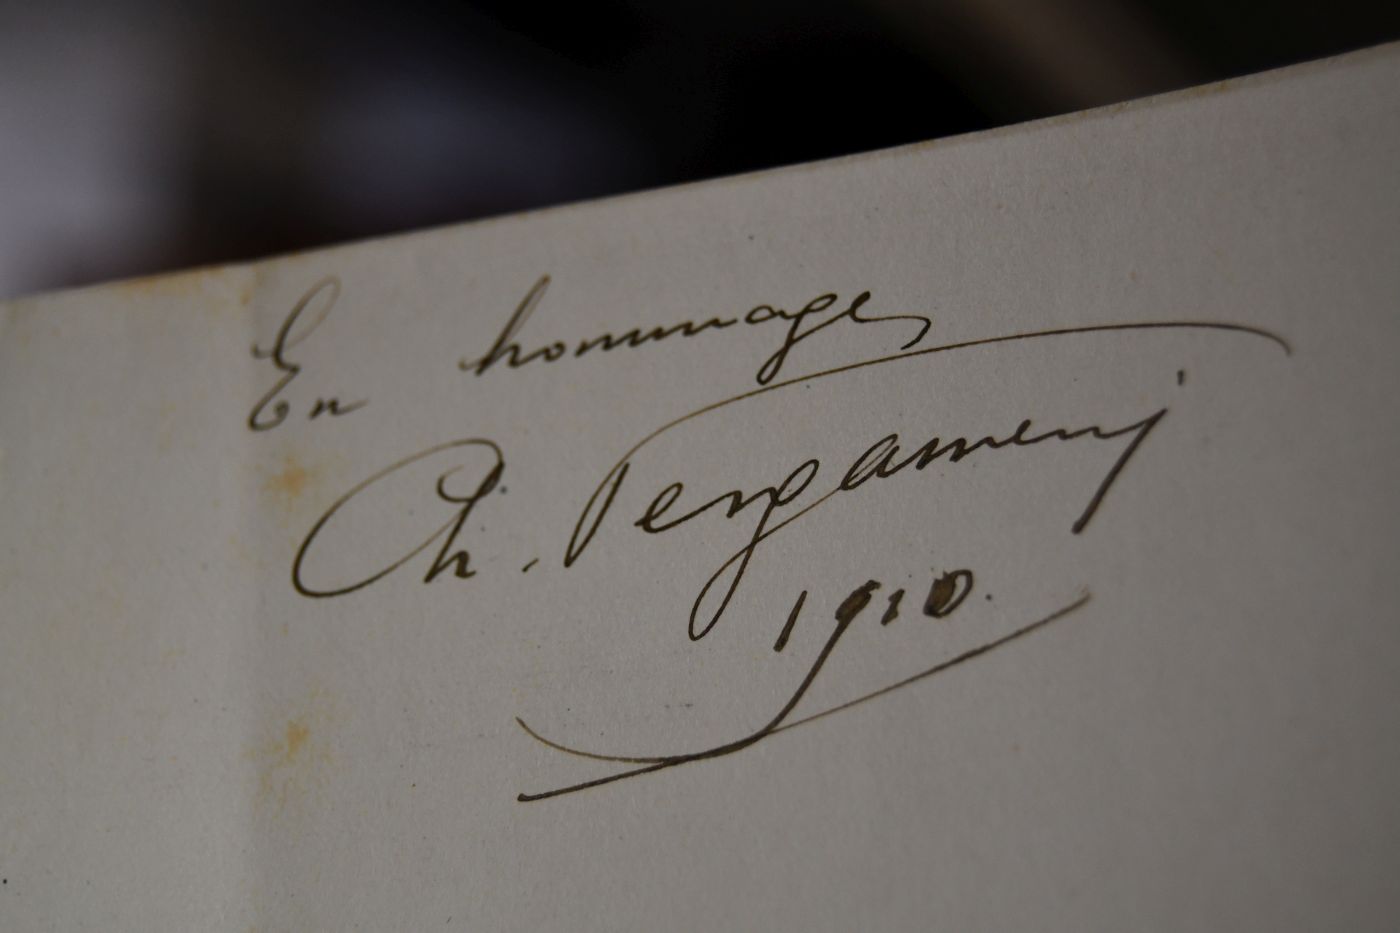 En hommage
Ch. Pergameni
1910.